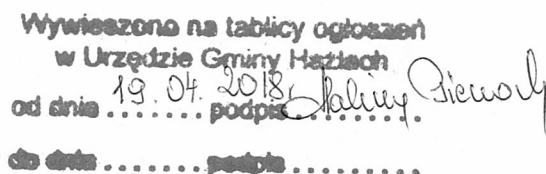 Wywieszono na tablicy ogłoszeń
w Urzędzie Gminy Hażlach
od dnia 19.04.2018 podpis
do dnia ........ podpis ..........